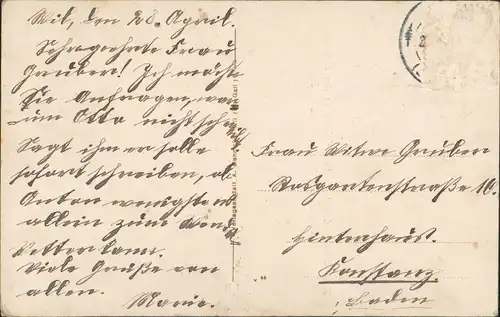 Wil, den 28. April.
Sehrgeehrte Frau
Gruber! Ich möchte
Sie Anfragen, war-
um Otto nicht schreibt
Sagt ihm er solle
sofort schreiben, ob
Anton wenigstens
allein zum
Vetter kann.
Viele Grüße von
allen.
Marie.
Frau Witwe Gruber
Rosgartenstraße 16.
Hinterhaus.
Konstanz.
Baden